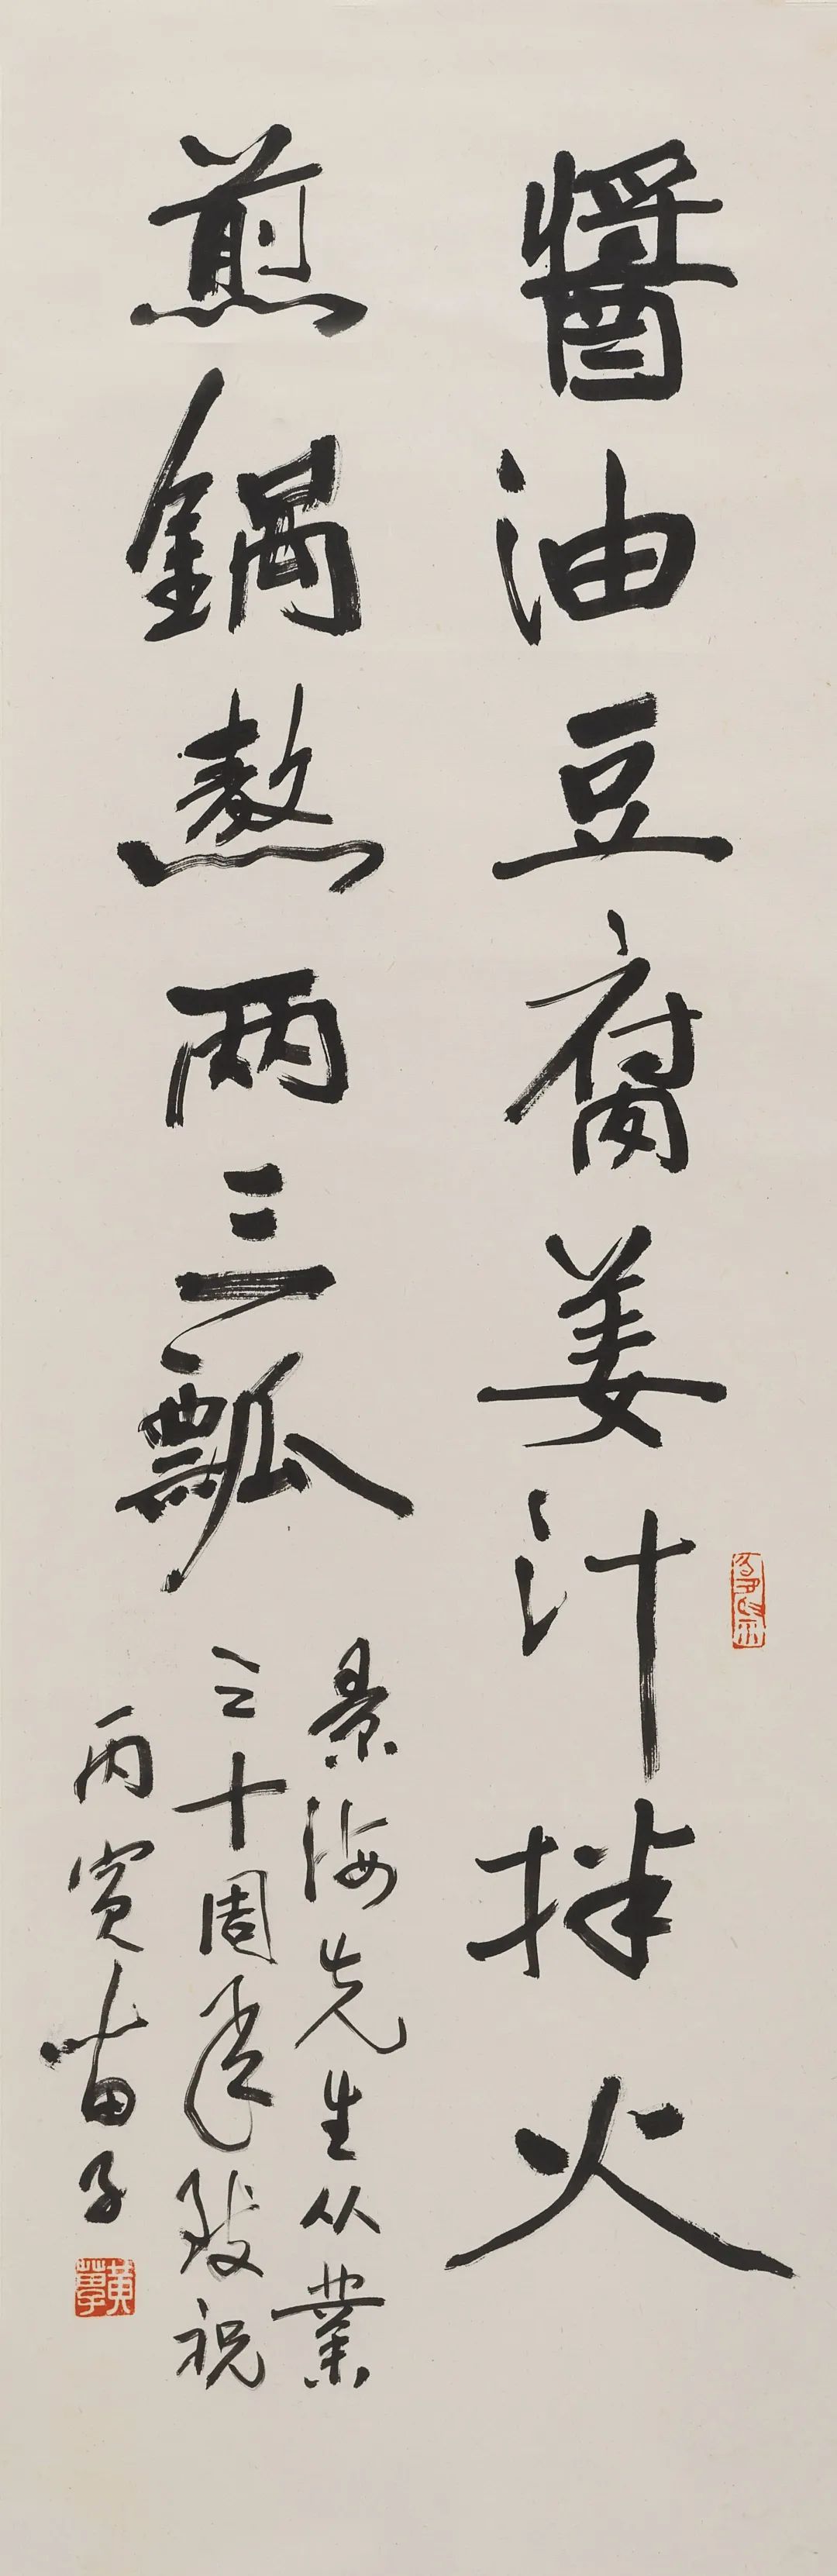 醬油豆腐姜汁拌火
煎鍋熬两三瓢
景海先生从業
三十周年致祝
丙寅苗子
黃苗子